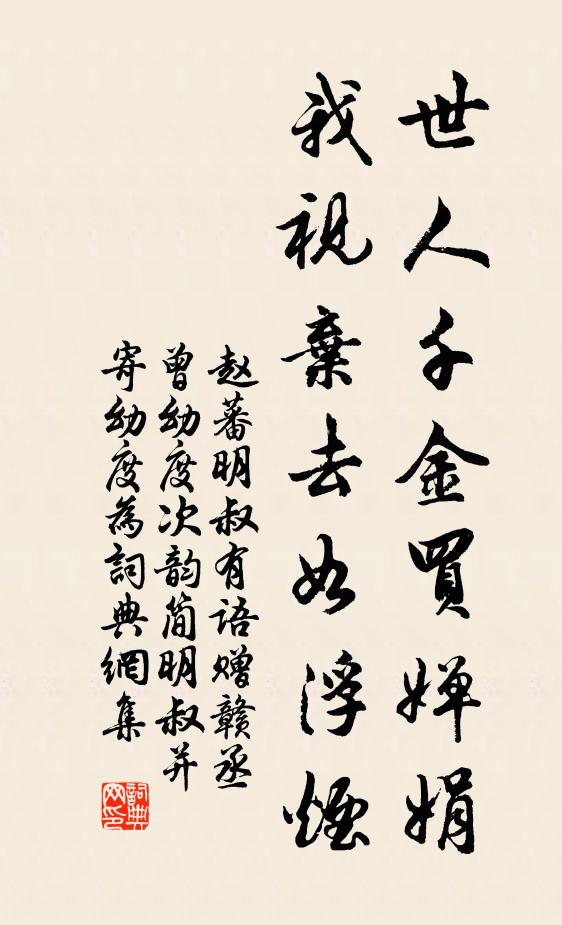 世人千金買嬋娟
我視棄去如浮煙
赵蕃明叔有语赠赣丞
曾幼度次韵简明叔并
寄幼度為詞典網集
詞典网印